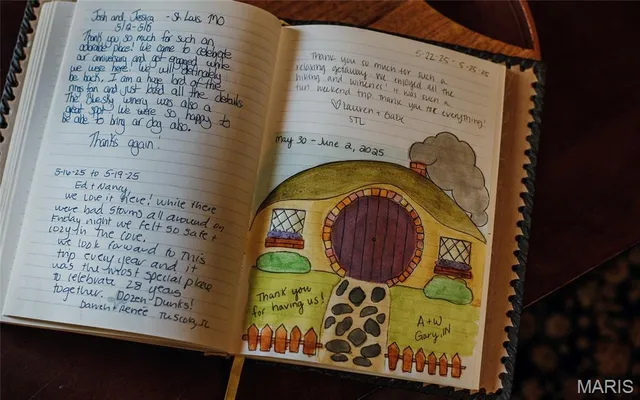 Josh and Jessica - St Louis MO
5/12-5/16
Thank you so much for such an
adorable place! We came to celebrate
our anniversary and got engaged while
we were here! We will definitely
be back. I am a huge lord of the
rings fan and just loved all the details
The Blue Sky winery was also a
great spot! We were so happy to
be able to bring our dog also.
Thanks again.
5-16-25 to 5-19-25
Ed + Nancy,
we love it here! While there
were bad storms all around on
Friday night we felt so safe +
cozy in the cove.
we look forward to this
trip every year and it
was the most special place
to celebrate 28 years
together. Dozen Dunks!
Darren + Renee Tuscola, IL
5-22-25 - 5-25-25
Thank you so much for such a
relaxing getaway. We enjoyed all the
hiking and wineries! It was such a
fun weekend trip. Thank you for everything!
♡ Lauren + Gabe
STL
May 30 - June 2, 2025
Thank you
for having us!
A + W
Gary, IN
MARIS